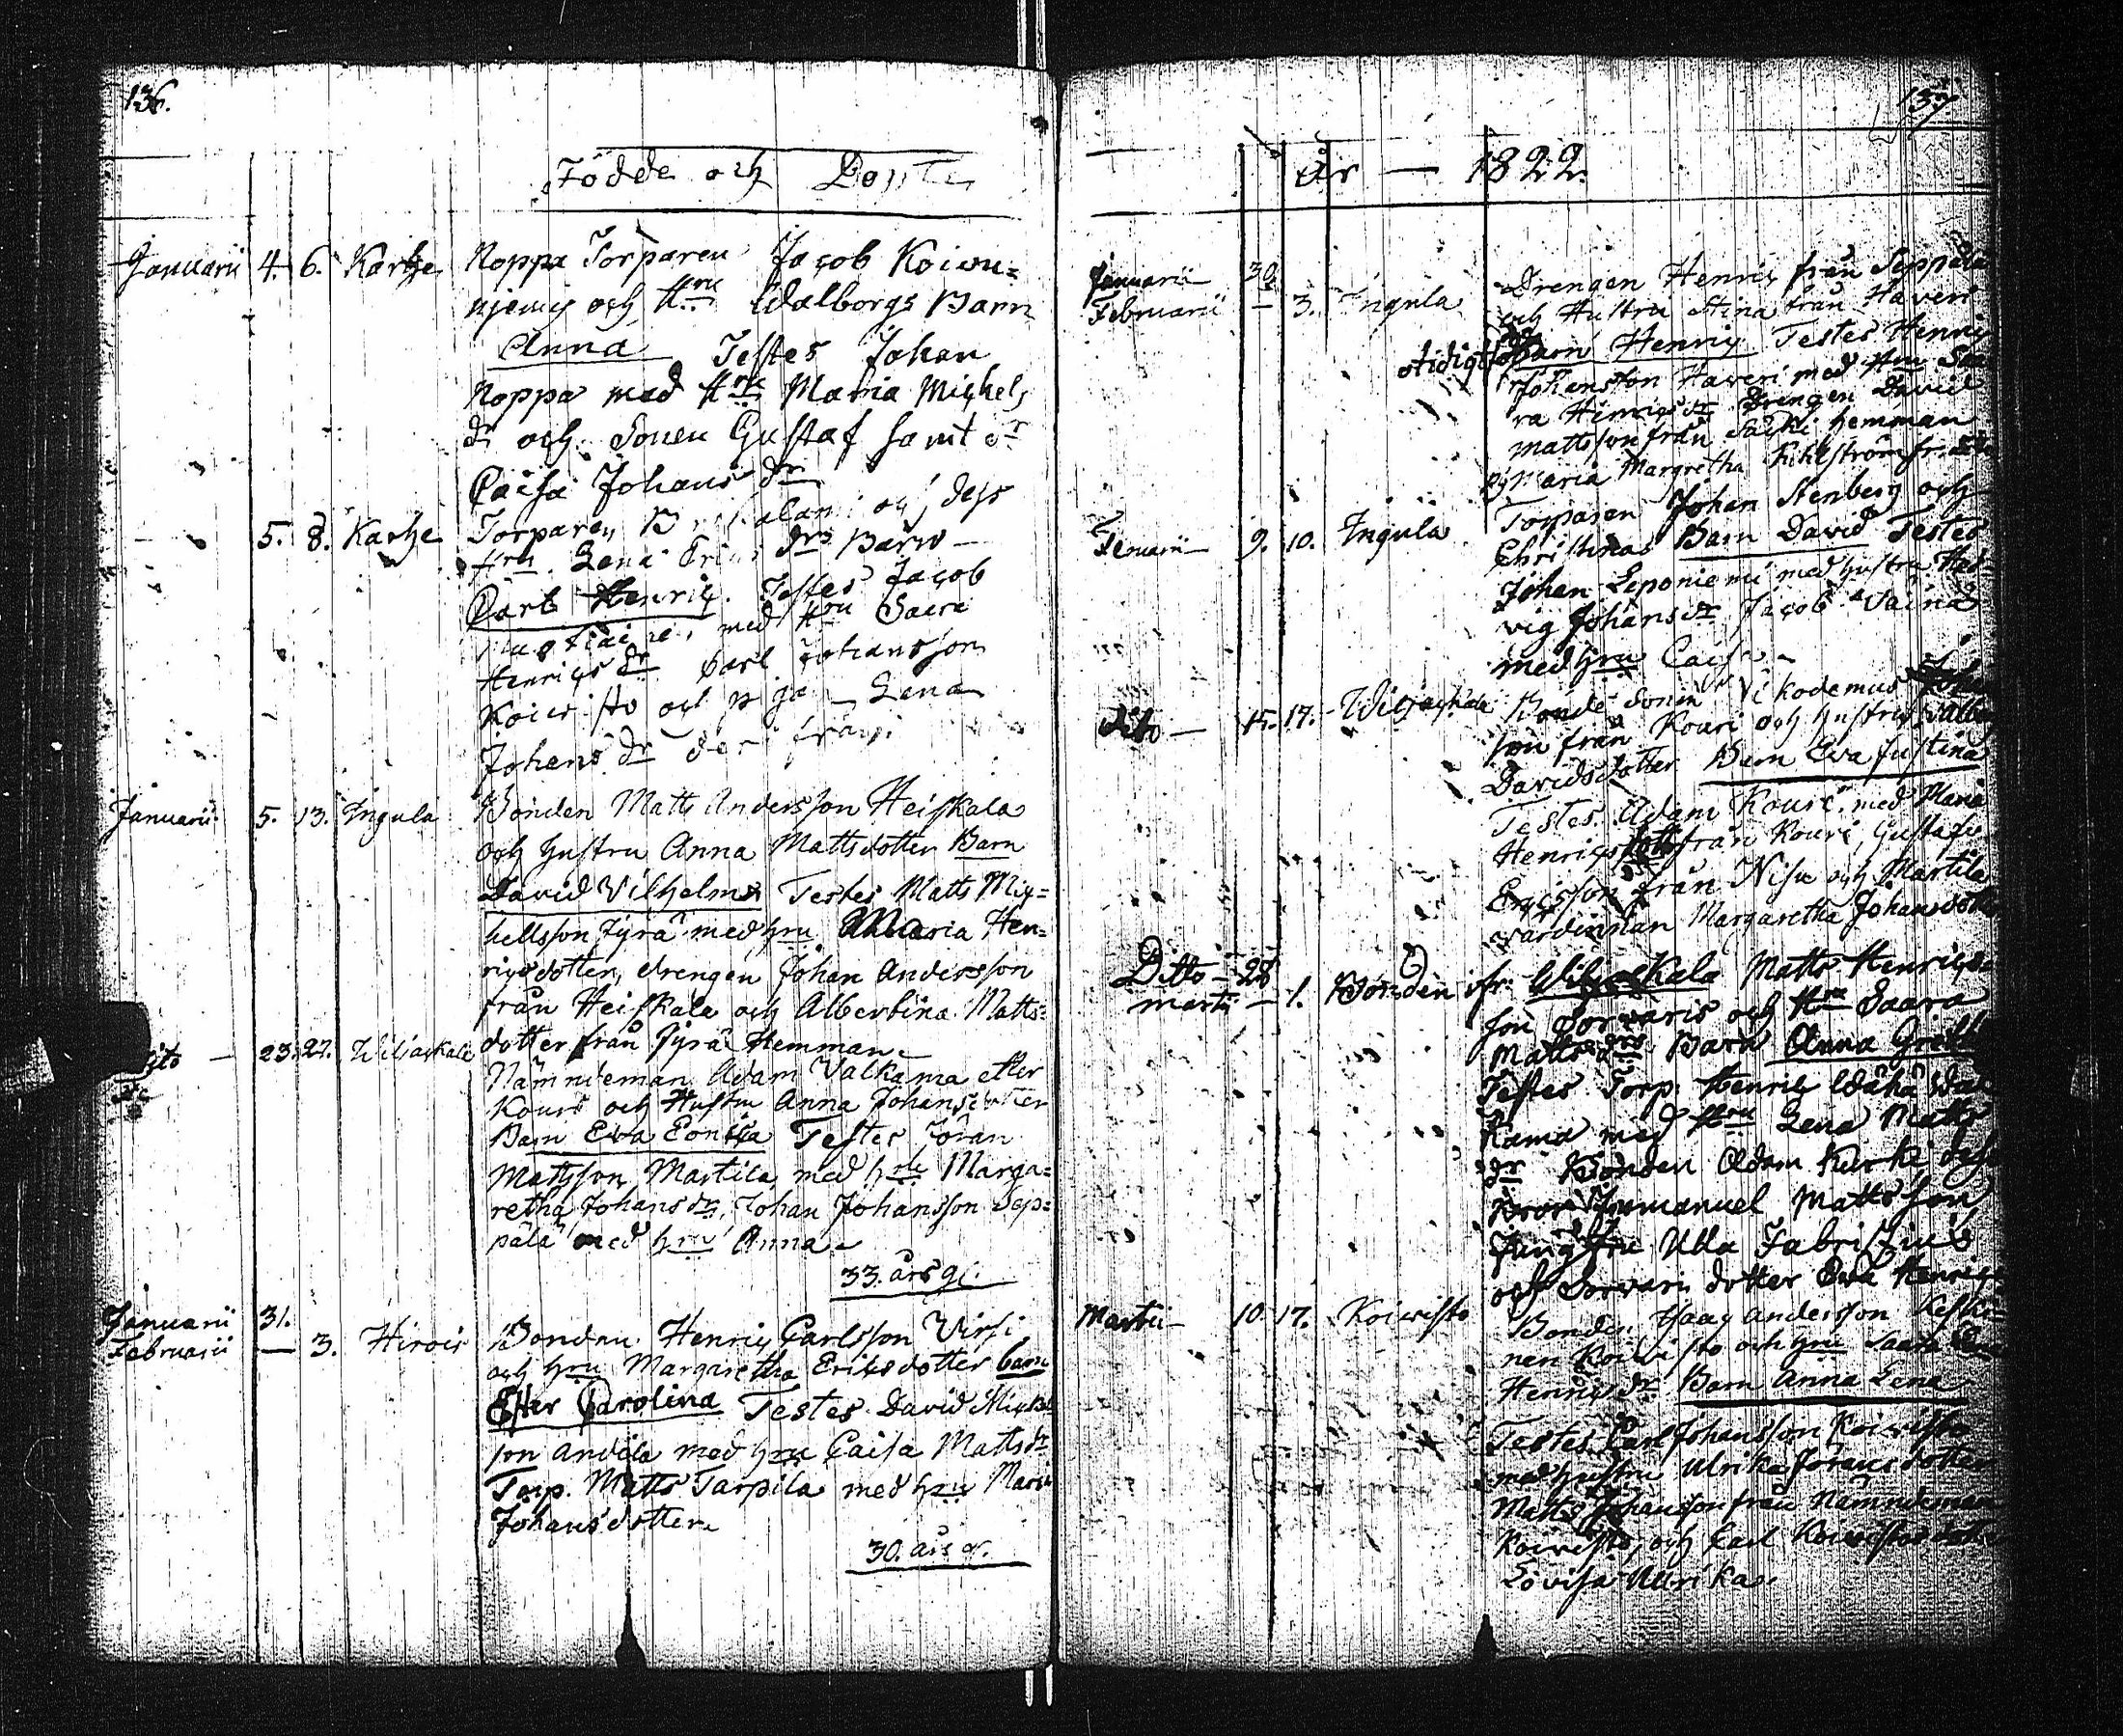 136.
Födde och Döpte
Januarii 4. 6. Karhe Noppa Torparen Jacob Koivu=
njemis och Hru Walborgs Barn
Anna Testes Johan
Noppa med Hru Maria Michels
dr och Sonen Gustaf samt
Caisa Johans dr
5. 8. Karhe Torparen och dess
Hru Lena drs Barn
Carl Henric. Testes Jacob
med Hru Saara
Henrics dr Carl Johansson
Koivisto och piga Lena
Johans dr der ifrån
Januarii 5. 13. Ingula Bonden Matts Andersson Heiskala
och hustru Anna Mattsdotter Barn
David Vilhelm Testes Matts Mic=
hellsson Jyrä med hru Maria Hen=
ricsdotter, drengen Johan Andersson
från Heiskala och Albertina Matts=
dotter från Jyrä Hemman
Dito — 23. 27. Wiliaskala Nämndeman Adam Valkama eller
Kouri och Hustru Anna Johansdotter
Barn Eva Testes Johan
Mattsson Martila med hru Marga=
retha Johans dr, Johan Johansson Sep=
pälä med hru Anna
33. års g.
Januarii 31.
Februarii — 3. Hirvis Bonden Henric Carlsson Virsi
och hru Margaretha Ericsdotter barn
Ester Carolina Testes David Mickel
son Andila med hru Caisa Matts dr
Torp. Matts Tarpila med hru Maria
Johansdotter
30. års g.
137
År — 1822.
Januarii 30
Februarii — 3. Ingula Drengen Henric från Seppälä
och Hustru Stina från Haveri
Barn Henric Testes Henric
Johansson Haveri med Hru Saa
ra Henrics dr Drengen David
Mattsson från Säcki hemman
Maria Margretha
Februarii 9. 10. Ingula Torparen Johan Stenberg och
Christinas Barn David Testes
Johan Leponiemi med hustru Hed=
vig Johans dr Jacob Vainio
med hru Caisa
dito — 15. 17. Wiliaskala Bonde Sonen Nikodemus Johan
son från Kouri och hustru Valbo
Davidsdotter Barn Eva Justina
Testes Adam Kouri med Maria
Henricsdotter från Kouri, Gustaf
Ericsson från Nisu och Martila
värdinnan Margaretha Johansdotter
Ditto — 28
Martii — 1. Bonden ifr. Wiliaskala Matts Henrics
son Sorvaris och Hru Saara
Matts drs Barn Anna Greta
Testes Torp. Henric Wähä Wal
kama med Hru Lena Matts
dr Bonden Adam Kurki, dess
Bror Immanuel Mattsson
Jungfru Ulla Fabritius
och Sorvari dotter Eva Henrics
Martii — 10. 17. Koivisto Bonden Isaac Andersson Keski
nen Koivisto och hru Saara
Henrics dr Barn Anna Lena
Testes Carl Johansson Koivisto
med hustru Ulrika Jörans dotter
Matts Johansson från Nämndeman
Koivisto, och Carl Koivistos dotter
Lovisa Ullrika.